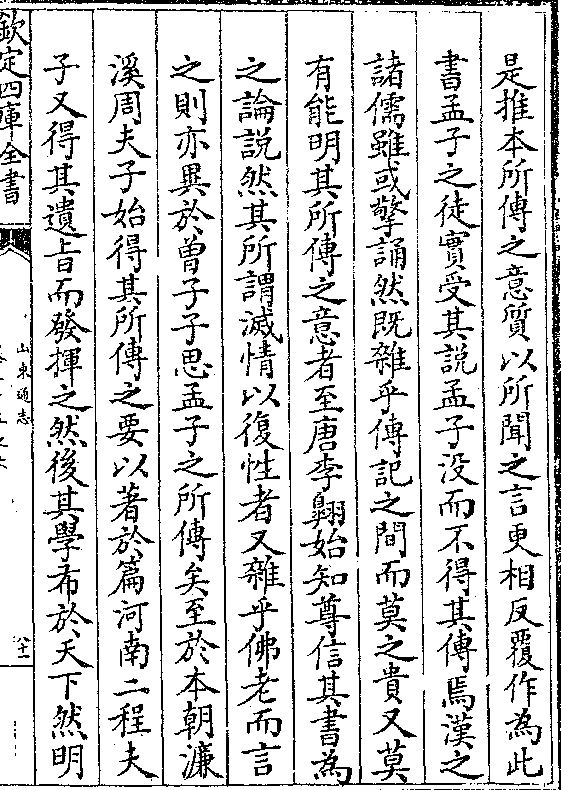 是推本所傳之意質以所聞之言更相反覆作為此
書孟子之徒實受其說孟子没而不得其傳焉漢之
諸儒雖或擎誦然既雜乎傳記之間而莫之貴又莫
有能明其所傳之意者至唐李翺始知尊信其書為
之論說然其所謂滅情以復性者又雜乎佛老而言
之則亦異於曾子子思孟子之所傳矣至於本朝濂
溪周夫子始得其所傳之要以著於篇河南二程夫
子又得其遺旨而發揮之然後其學布於天下然明
欽定四庫全書
山東通志
八十一